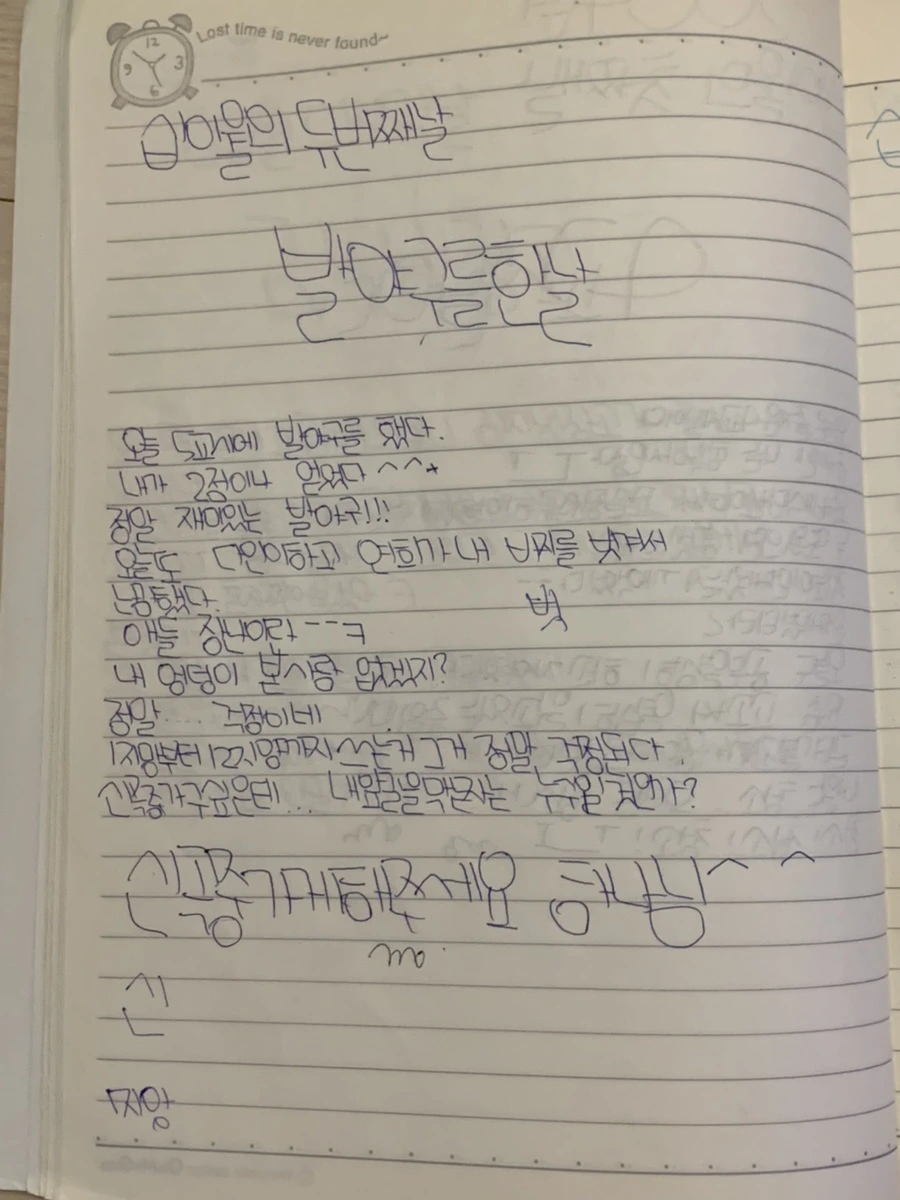 Lost time is never found~
12
9 3
6
십이월의 두번째날
발야구를한날
오늘 5교시에 발야구를 했다.
내가 2점이나 얻었다 ^^*
정말 재미있는 발야구!!
오늘도 다인이하고 연희가 내 바지를 벗겨서
난감했다.
벗
애들 장난이란---ㅋ
내 엉덩이 본사람 없겠지?
정말.... 걱정이네
1지망부터 12지망까지 쓰는거 그거 정말 걱정된다.
신목중가구싶은데... 내앞길을막는자는 누구일것인가?
신목중가게해주세요 해나님^^
신
지망